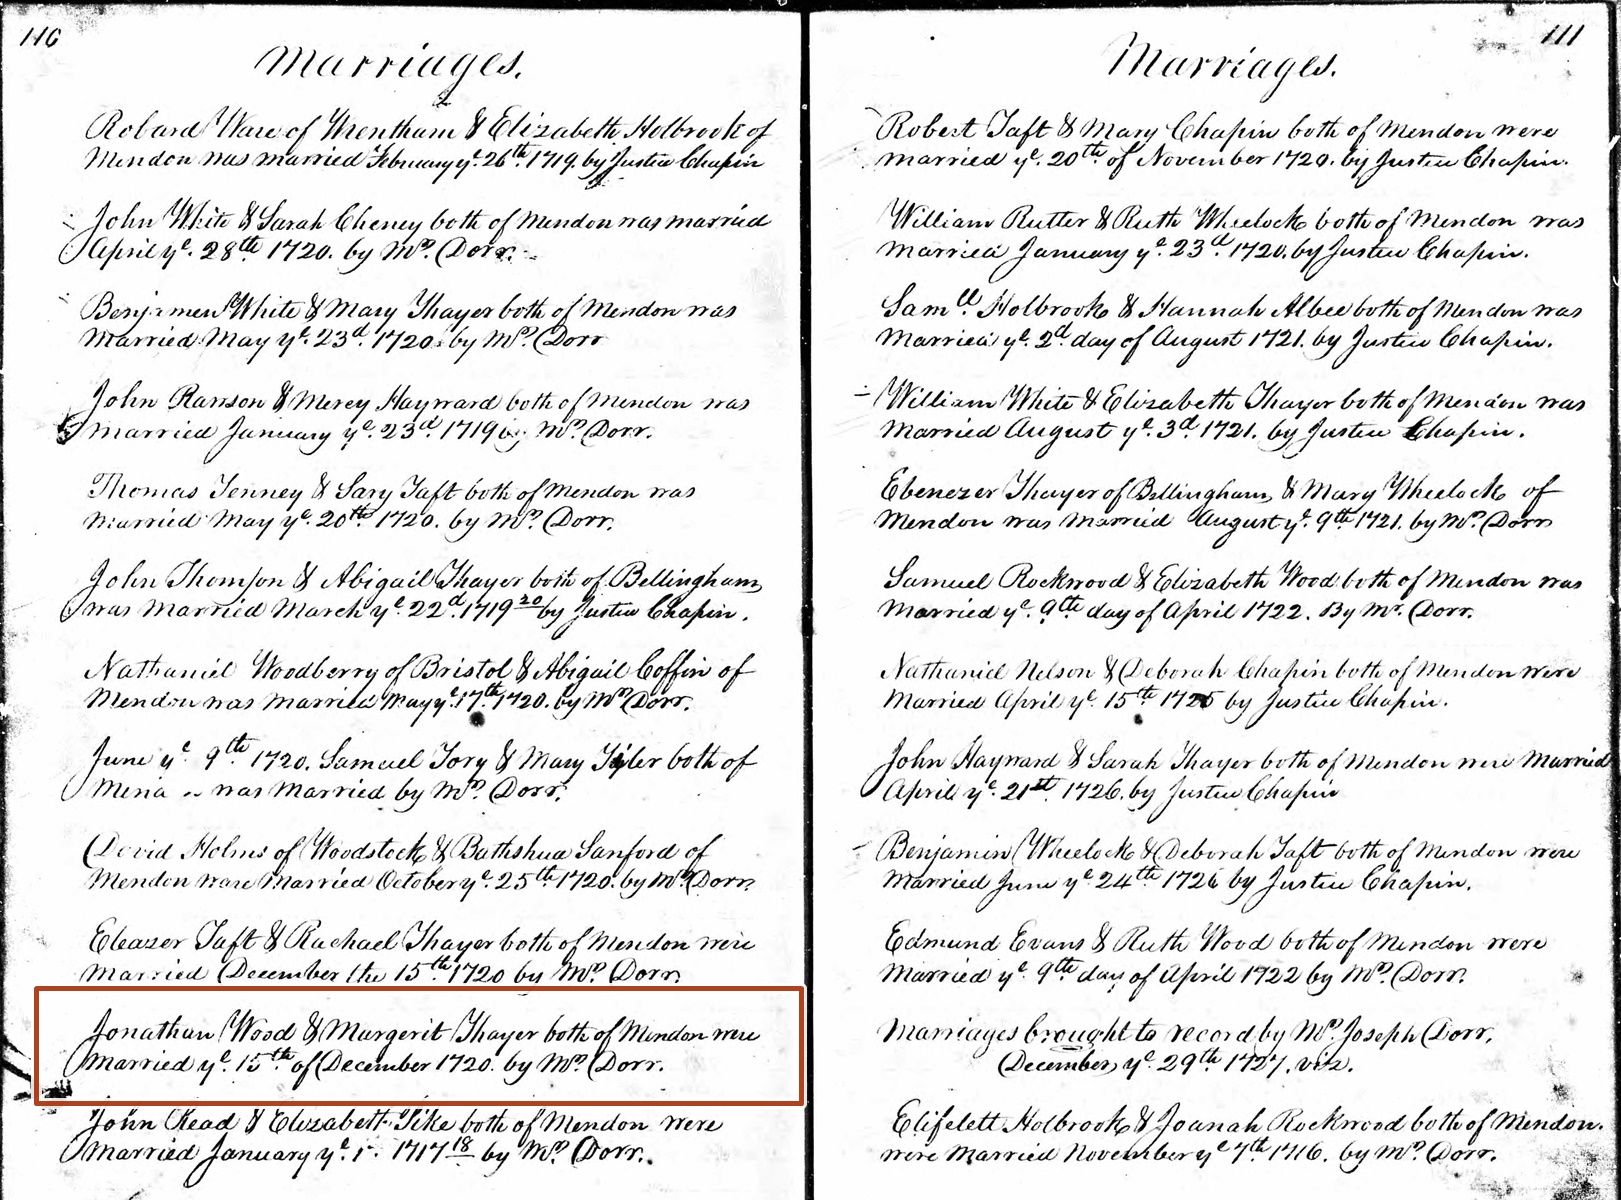 110
Marriages.
Robard Ware of Wrentham & Elizabeth Holbrook of
Mendon was married February ye. 26th. 1719. by Justice Chapin
John White & Sarah Cheney both of Mendon was married
April ye. 28th 1720. by Mr. Dorr.
Benjamen White & Mary Thayer both of Mendon was
Married May ye. 23d. 1720. by Mr. Dorr
John Rawson & Mercy Hayward both of Mendon was
married January ye. 23d. 1719 by Mr. Dorr.
Thomas Tenney & Sary Taft both of Mendon was
married May ye. 20th. 1720. by Mr. Dorr.
John Thomson & Abigail Thayer both of Bellingham
was Married March ye. 22d. 1719 20 by Justice Chapin.
Nathaniel Woodberry of Bristol & Abigail Coffin of
Mendon was married May ye. 17th. 1720. by Mr. Dorr.
June ye. 9th. 1720. Samuel Tory & Mary Tyler both of
was Married by Mr. Dorr.
David Holms of Woodstock & Bathshua Sanford of
Mendon ware Married October ye. 25th. 1720. by Mr. Dorr.
Eleazer Taft & Rachael Thayer both of Mendon were
Married December the 15th. 1720 by Mr. Dorr.
Jonathan Wood & Margerit Thayer both of Mendon were
Married ye. 15th of December 1720. by Mr. Dorr.
John Read & Elizabeth both of Mendon were
Married January ye. 1717 18 by Mr. Dorr.
111
Marriages.
Robert Taft & Mary Chapin both of Mendon were
married ye. 20th. of November 1720. by Justice Chapin.
William Rutter & Ruth Wheelock both of Mendon was
married January ye. 23d. 1720. by Justice Chapin.
Samll. Holbrook & Hannah Albee both of Mendon was
Married ye. 2d. day of August 1721. by Justice Chapin.
William White & Elizabeth Thayer both of Mendon was
Married August ye. 3d. 1721. by Justice Chapin.
Ebenezer Thayer of Bellingham, & Mary Wheelock of
Mendon was Married August ye. 9th. 1721. by Mr. Dorr
Samuel Rockwood & Elizabeth Wood both of Mendon was
Married ye. 9th. day of April 1722. By Mr. Dorr.
Nathaniel Nelson & Deborah Chapin both of Mendon were
Married April ye. 15th by Justice Chapin.
John Hayward & Sarah Thayer both of Mendon were Married
April ye. 21st. 1726. by Justice Chapin
Benjamin Wheelock & Deborah Taft both of Mendon were
Married June ye. 24th 1726 by Justice Chapin.
Edmund Evans & Ruth Wood both of Mendon were
Married ye. 9th day of April 1722 by Mr. Dorr.
Marriages brought to record by Mr. Joseph Dorr,
December, ye. 29th. 1727. viz.
Elifelett Holbrook & Joanah Rockwood both of Mendon.
were Married November ye 7th. 1716. by Mr. Dorr.